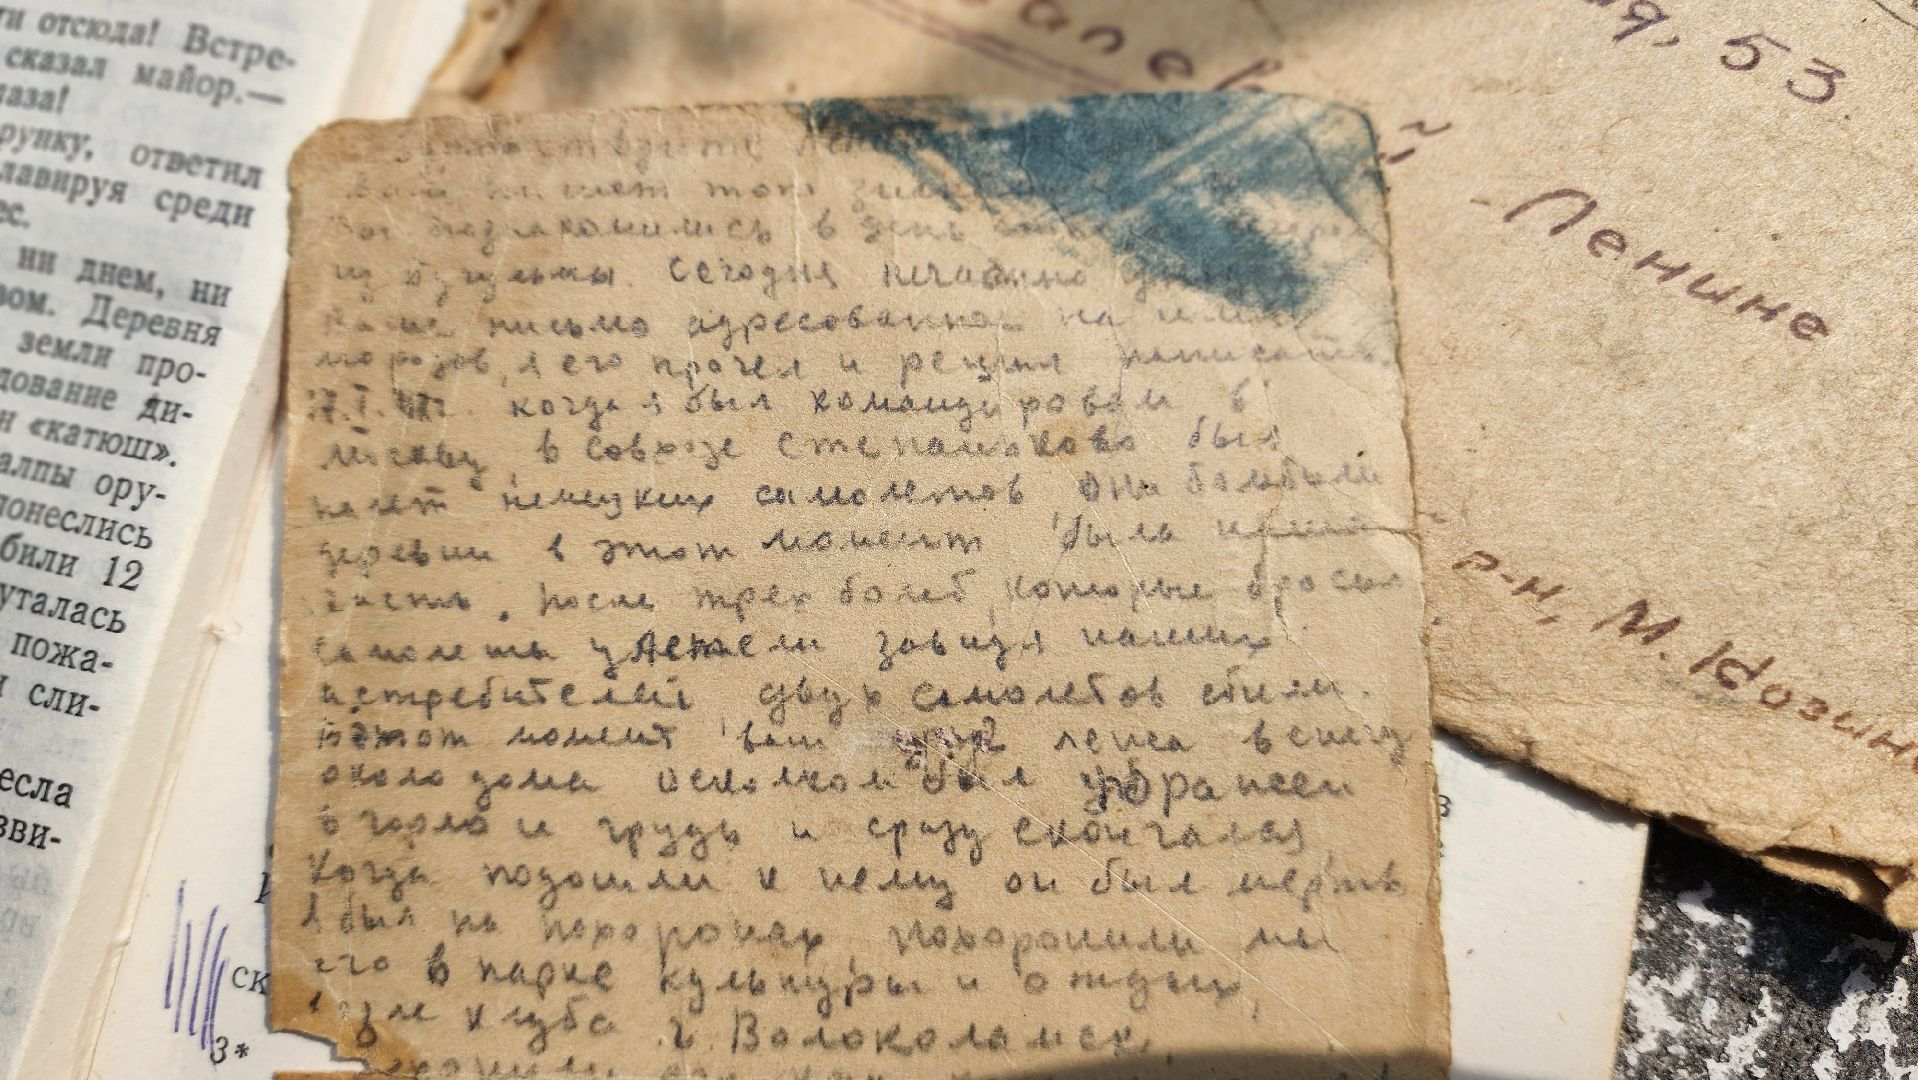 ти отсюда! Встре-
сказал майор.—
лаза!
рупку, ответил
лавируя среди
ес.
ни днем, ни
ром. Деревня
земли про-
дование ди-
н «катюш».
алпы ору-
донеслись
били 12
уталась
пожа-
и сли-
есла
зви-
ск
3*
я, 53
Ленине
р-н, М. Козин
Здравствуйте
Вам пишет тот
Вы познакомились в день
из Бугульмы. Сегодня нечаянно
Ваше письмо адресованное на имя
морозов, я его прочел и решил написать.
когда я был командирован в
Москву, в совхозе Степаньково был
налет немецких самолетов они бомбили
деревни в этот момент была наша
часть, после трех бомб, которые бросил
самолеты улетели завидя наших
истребителей двух самолетов сбили.
В этот момент ваш лежа в снегу
около дома осколком был убранеен
в горло и грудь и сразу скончался
Когда подошли к нему он был мертв
я был на похоронах, похоронили мы
его в парке культуры и отдых,
возле клуба г. Волоколамск,